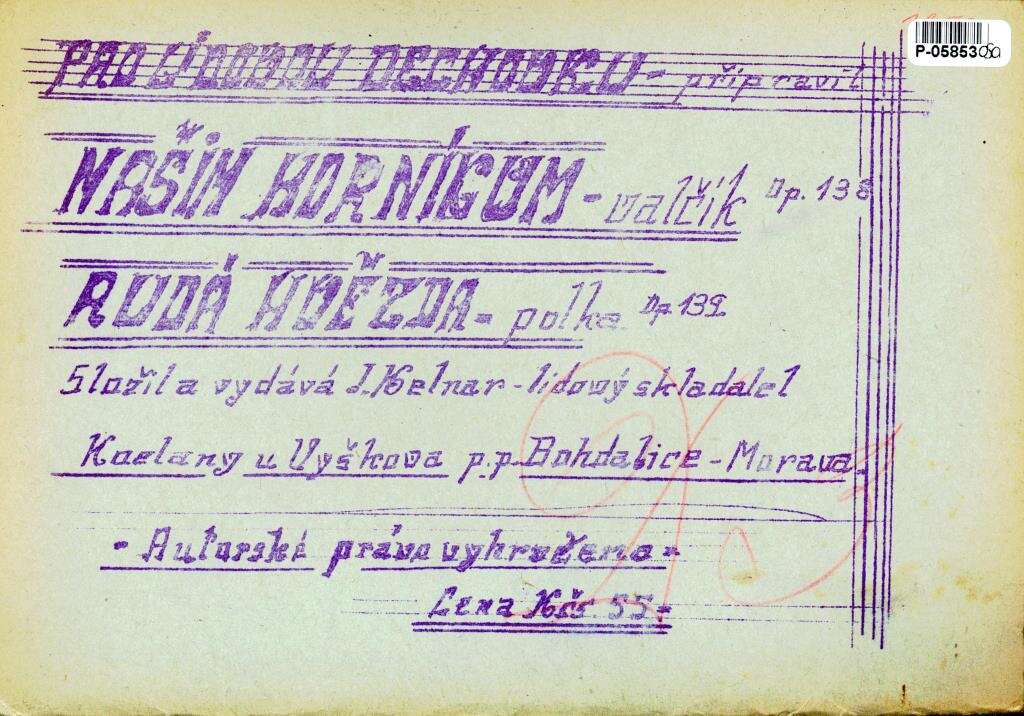 P-05853
PRO LIDOVOU DECHOVKU - připravil
NAŠÍM HORNÍKŮM - valčík Op. 138
RUDÁ HVĚZDA - polka Op. 139
Složil a vydává J. Kelnar - lidový skladatel
u Vyškova p.p. Bohdalice - Morava.
- Autorské právo vyhrazeno -
Cena Kčs 55-